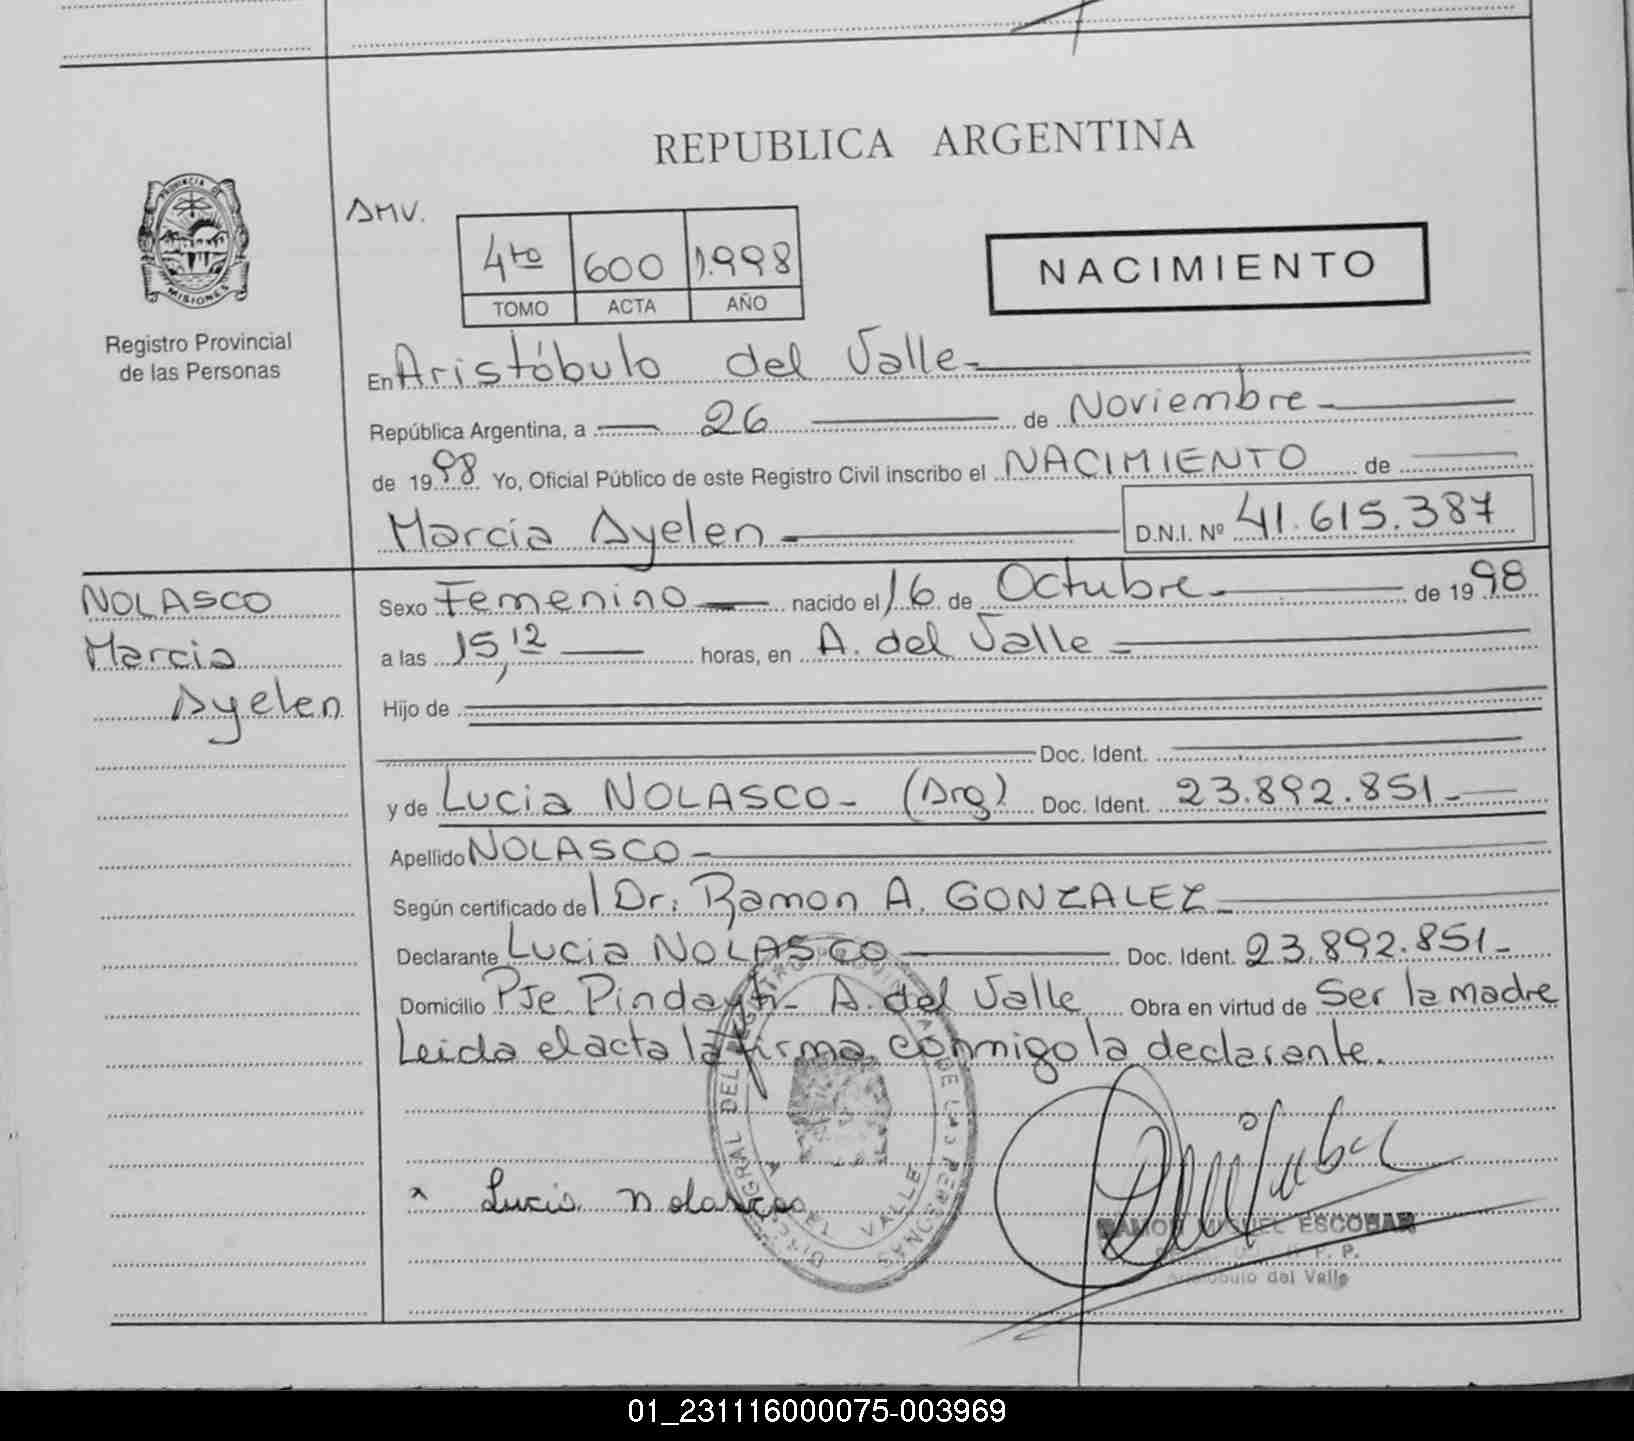 REPUBLICA ARGENTINA
PROVINCIA DE
MISIONES
Registro Provincial
de las Personas
AMV.
4to 600 1.998
TOMO ACTA AÑO
NACIMIENTO
En Aristóbulo del Valle
República Argentina, a 26 de Noviembre
de 1998 Yo, Oficial Público de este Registro Civil inscribo el NACIMIENTO de
Marcia Ayelen D.N.I. Nº 41.615.387
NOLASCO
Marcia
Ayelen
Sexo Femenino nacido el 16 de Octubre de 1998
a las 15,12 horas, en A. del Valle
Hijo de
Doc. Ident.
y de Lucia NOLASCO - (Arg) Doc. Ident. 23.892.851
Apellido NOLASCO
Según certificado del Dr: Ramon A. GONZALEZ
Declarante Lucia NOLASCO Doc. Ident. 23.892.851
Domicilio Pje Pindayti - A. del Valle Obra en virtud de Ser la madre
Leida el acta la firma conmigo la declarante.
x Lucia nolasco
DEL REGISTRO DE LAS PERSONAS
A. DEL VALLE
RAMON MIGUEL ESCOBAR
R. P. P.
Aristobulo del Valle
01_231116000075-003969